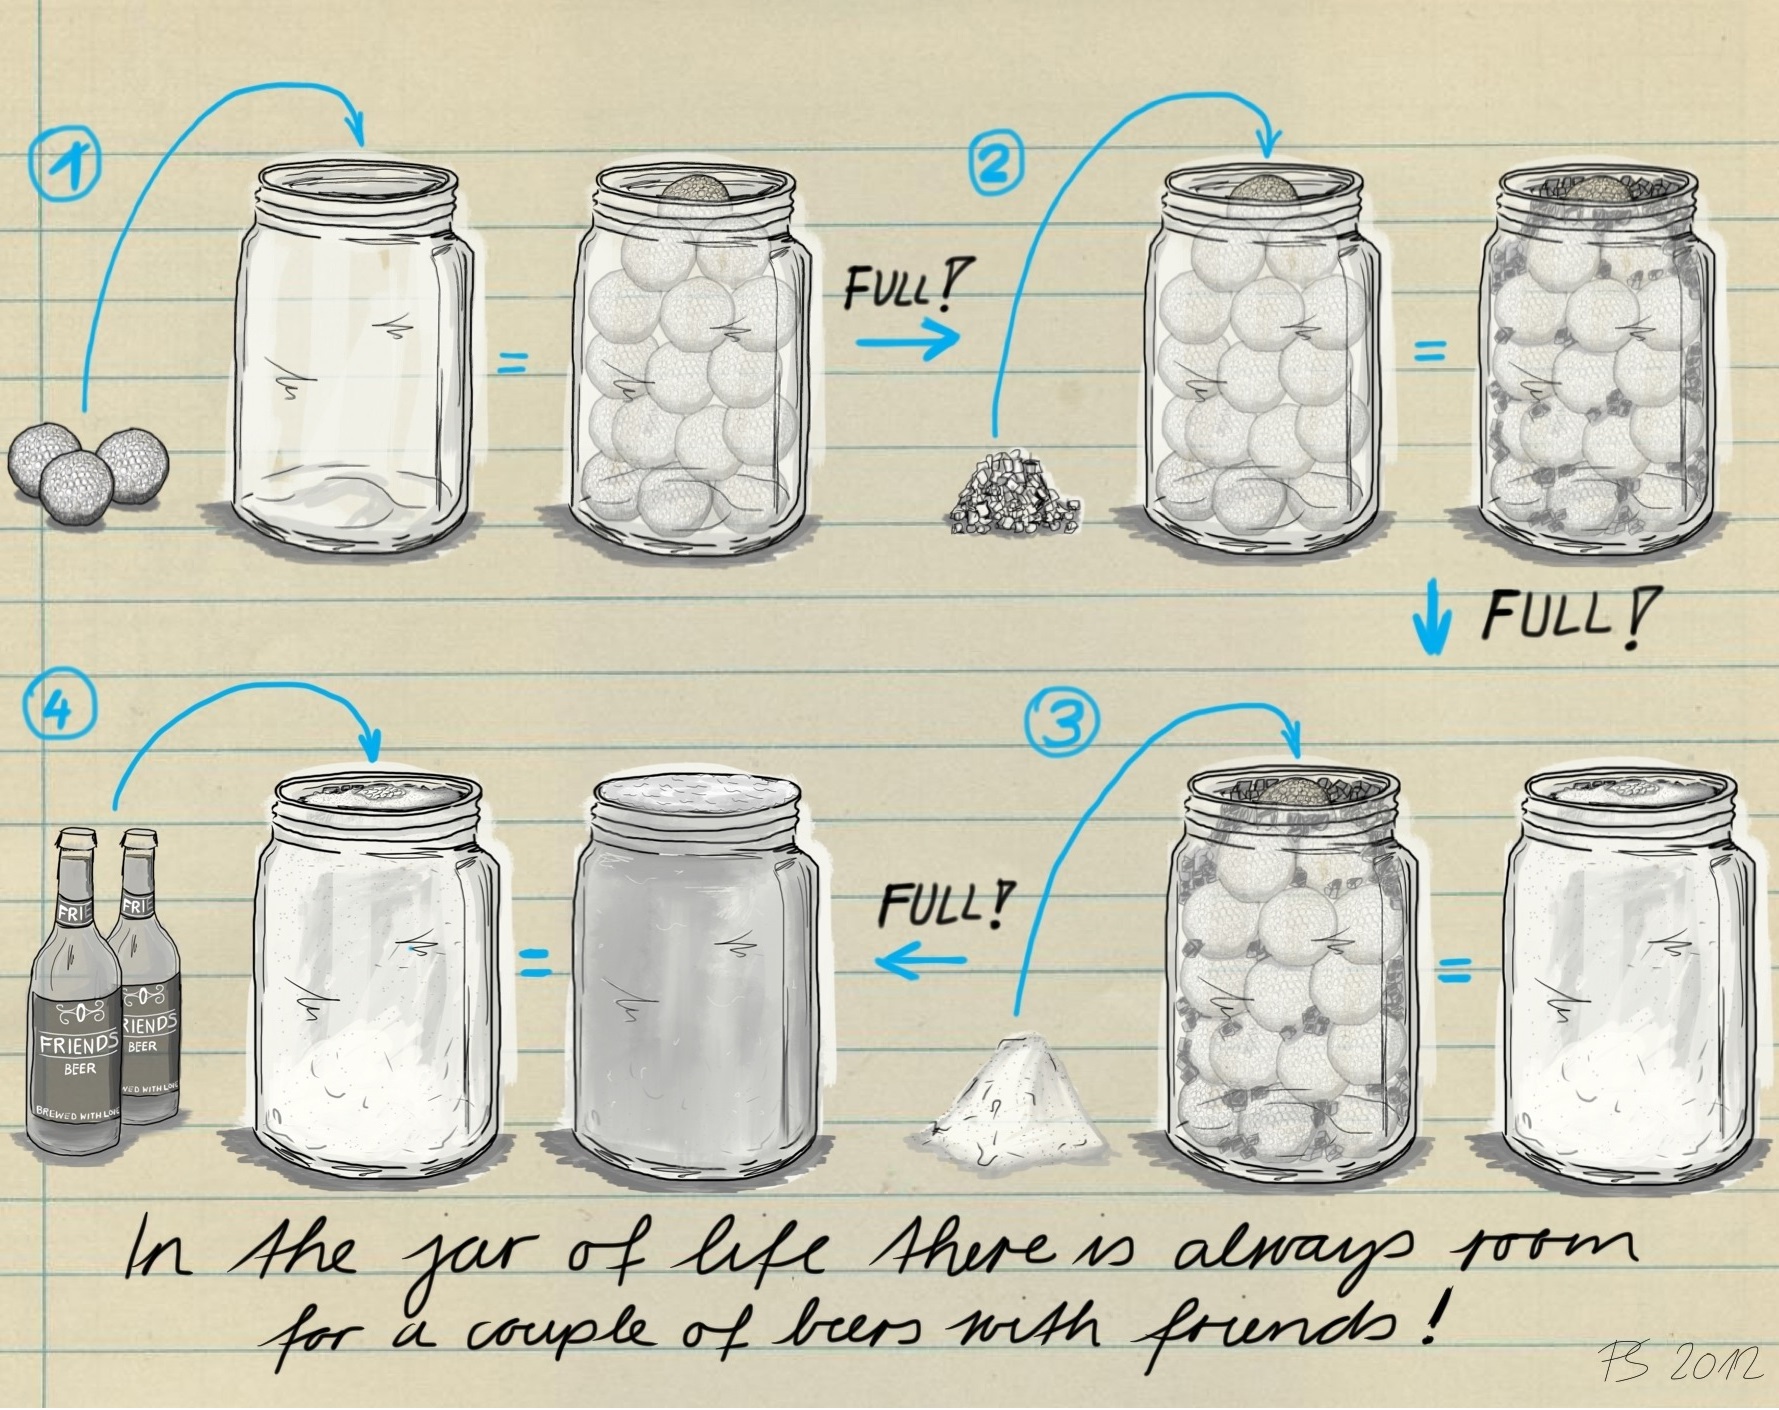 1
2
FULL!
=
=
FULL!
4
3
FULL!
=
=
FRIE
FRI
FRIENDS
BEER
BREWED WITH LOVE
RIENDS
BEER
WED WITH LOVE
In the jar of life there is always room
for a couple of beers with friends!
PS 2012